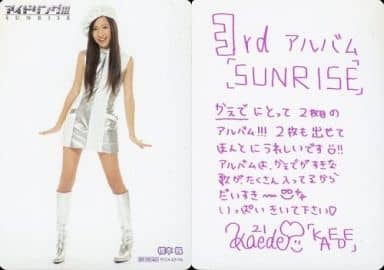 アイドリング!!!
SUNRISE
橋本 楓
3rd アルバム
「SUNRISE」
かえで にとって 2枚目の
アルバム!!! 2枚も出せて
ほんとにうれしいです!!
アルバムは、かえでがすきな
歌がたくさん入ってるから
だいすき〜 な
いっぱい きいて下さい♡
21
Kaede